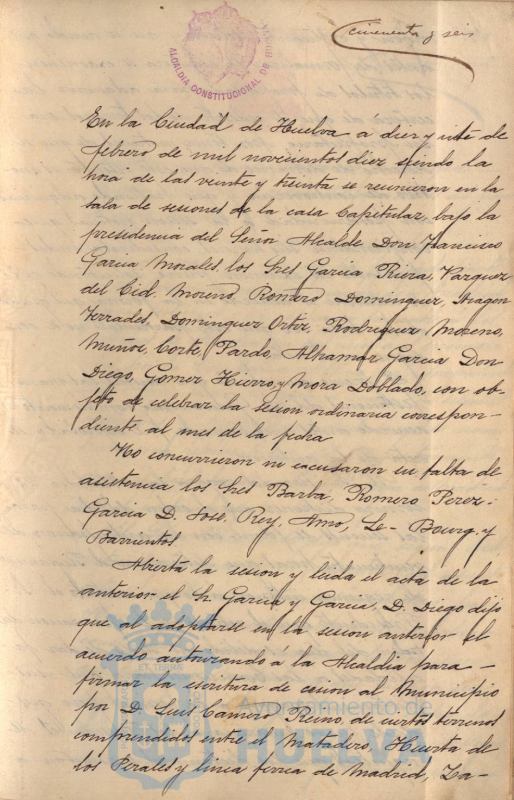 cincuenta y seis
ALCALDIA CONSTITUCIONAL DE HUELVA
En la Ciudad de Huelva á diez y siete de
febrero de mil novecientos diez siendo la
hora de las veinte y treinta se reunieron en la
sala de sesiones de la casa Capitular, bajo la
presidencia del Señor Alcalde Don Francisco
Garcia Morales, los Sres Garcia Riera, Vazquez
del Cid, Moreno, Romero Dominguez, Aragon
Terrades, Dominguez Ortiz, Rodriguez Moreno,
Muñoz, Corte, Pardo, Alhamar Garcia Don
Diego, Gomez Hierro, y Mora Doblado, con ob-
jeto de celebrar la sesion ordinaria correspon-
diente al mes de la fecha
No concurrieron ni excusaron su falta de
asistencia los Sres Barba, Romero Perez-
Garcia D. José, Rey, Amo, Le-Bourg, y
Barrientos
Abierta la sesion y leida el acta de la
anterior el Sr. Garcia y Garcia, D. Diego dijo
que al adoptarse en la sesion anterior el
acuerdo autorizando á la Alcaldia para -
firmar la escritura de cesion al Municipio
por D. Luis Camero Reino de ciertos terrenos
comprendidos entre el Matadero, Huerta de
los Perales y linea ferrea de Madrid, Za-
Ayuntamiento de
HUELVA